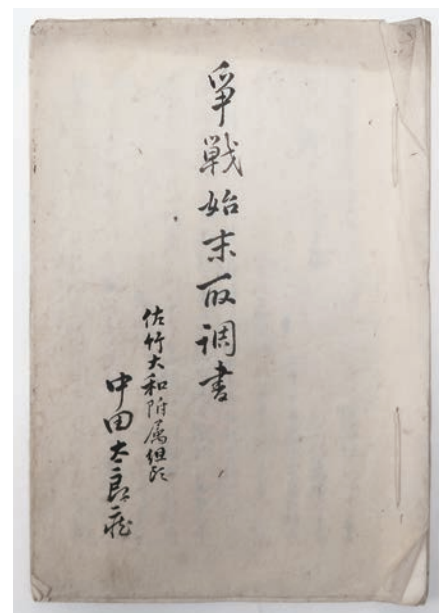 爭戦始末取調書
佐竹大和附属組頭
中田太良蔵